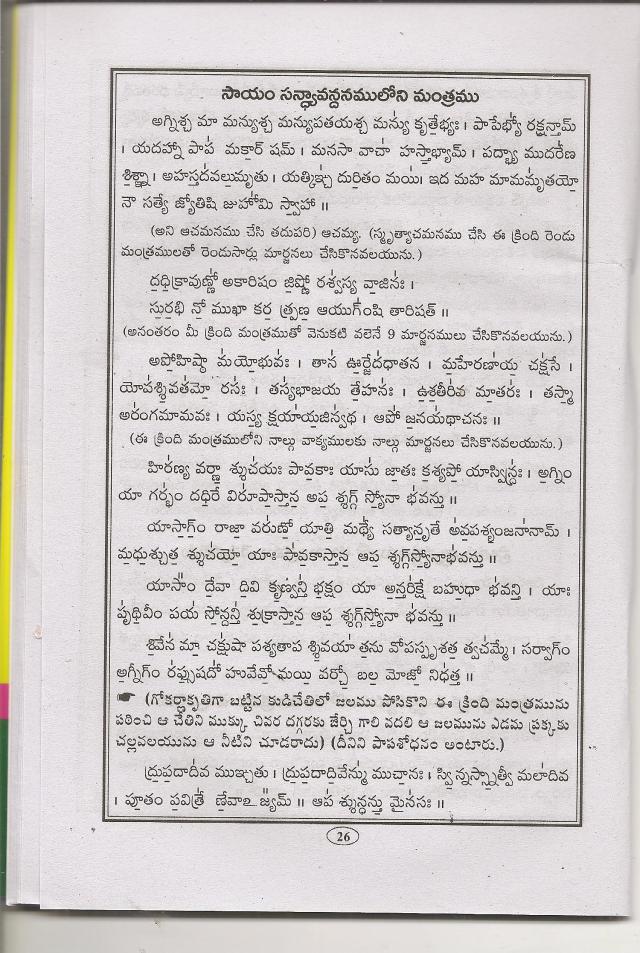 సాయం సన్ధ్యావన్దనములోని మంత్రము
అగ్నిశ్చ మా మన్యుశ్చ మన్యుపతయశ్చ మన్యు॑ కృతే॒భ్యః । పాపేభ్యో॑ రక్ష॒న్తామ్
। యదహ్నా పాప॑ మకా॒ర్ షమ్ । మనసా వాచా॑ హస్తా॒భ్యామ్ । పద్భ్యా ముదరే॑ణ
శి॒శ్నా । అహ॒స్తద॑వలు॒మృతు । యత్కిఞ్చ॑ దురి॒తం మయి॑ । ఇద మహ మామమృ॑తయో॒
నౌ సత్యే జ్యోతిషి జుహో॑మి స్వా॒హా ॥
(అని ఆచమనము చేసి తదుపరి) ఆచమ్య. (స్మృత్యాచమనము చేసి ఈ క్రింది రెండు
మంత్రములతో రెండుసార్లు మార్జనలు చేసికొనవలయును.)
ద॒ధి॒క్రావుణ్ణో॑ అకారిషం జి॒ష్ణో రశ్వ॑స్య వా॒జినః॑ ।
సు॒ర॒భి నో॒ ముఖా॑ కర॒ త్ప్రణ॒ ఆయుగ్ం॑షి తారిషత్ ॥
(అనంతరం మీ క్రింది మంత్రముతో వెనుకటి వలెనే 9 మార్జనములు చేసికొనవలయును.)
అపో॒హిష్ఠా మ॑యో॒భువః॑ । తాన॑ ఊ॒ర్జేద॑ధాతన । మ॒హేరణా॑య॒ చక్ష॑సే ।
యోవ॑శ్శి॒వత॑మో॒ రసః॑ । తస్య॑భాజయ తే॒హనః॑ । ఉ॒శ॒తీరి॑వ మా॒తరః॑ । తస్మా॒
అరం॑గమామవః । యస్య॒ క్షయా॑య॒జిన్వ॑థ । ఆపో॑ జ॒నయ॑థాచనః ॥
(ఈ క్రింది మంత్రములోని నాల్గు వాక్యములకు నాల్గు మార్జనలు చేసికొనవలయును.)
హిర॑ణ్య వర్ణా॒ శ్శుచ॑యః పావ॒కాః యాసు॑ జా॒తః క॒శ్యపో॒ యాస్విన్ద్రః॑ । అ॒గ్నిం
యా గర్భం॑ దధి॒రే విరూ॑పా॒స్తాన॒ అప॒ శ్శగ్గ్ స్యో॒నా భ॑వన్తు ॥
యాసా॒గ్ం రాజా॒ వరు॑ణో॒ యాతి॒ మధ్యే॑ సత్యానృ॒తే అ॑వ॒పశ్య॒ంజనా॑నామ్ ।
మ॒ధు॒శ్చుత॒ శ్శుచ॑యో॒ యాః పా॑వ॒కాస్తాన॒ ఆప॒ శ్శగ్గ్‌స్యో॒నాభ॑వన్తు ॥
యాసాం᳚ దే॒వా ది॒వి కృ॒ణ్వన్తి॑ భ॒క్షం యా అ॒న్తరి॑క్షే బహు॒ధా భ॑వన్తి । యాః
పృ॑థి॒వీం పయ॑ సో॒న్దన్తి॑ శు॒క్రాస్తాన॒ ఆప॒ శ్శగ్గ్‌స్యో॒నా భ॑వన్తు ॥
శి॒వేన॑ మా॒ చక్షు॑షా పశ్యతాప శ్శి॒వయా॑ త॒ను వోప॑స్పృశత॒ త్వచ॑మ్మే । సర్వాగ్ం॑
అ॒గ్నీగ్ం ర॑ప్సు॒షదో॑ హువేవో॒ మయి॒ వర్చో॒ బల॒ మోజో॒ నిధ॑త్త ॥
☛ (గోకర్ణాకృతిగా బట్టిన కుడిచేతిలో జలము పోసికొని ఈ క్రింది మంత్రమును
పఠించి ఆ చేతిని ముక్కు చివర దగ్గరకు జేర్చి గాలి వదలి ఆ జలమును ఎడమ ప్రక్కకు
చల్లవలయును ఆ నీటిని చూడరాదు) (దీనిని పాపశోధనం అంటారు.)
ద్రు॒ప॒దాది॑వ ముఞ్చతు । ద్రు॒ప॒దాది॒వేన్ము॑ ముచా॒నః । స్వి॒న్నస్స్నా॒త్వీ మలా॑దివ
। పూ॒తం ప॒విత్రే॑ ణే॒వాఽ జ్య᳚మ్ ॥ ఆప॑ శ్శున్ధన్తు॒ మైన॑సః ॥
26